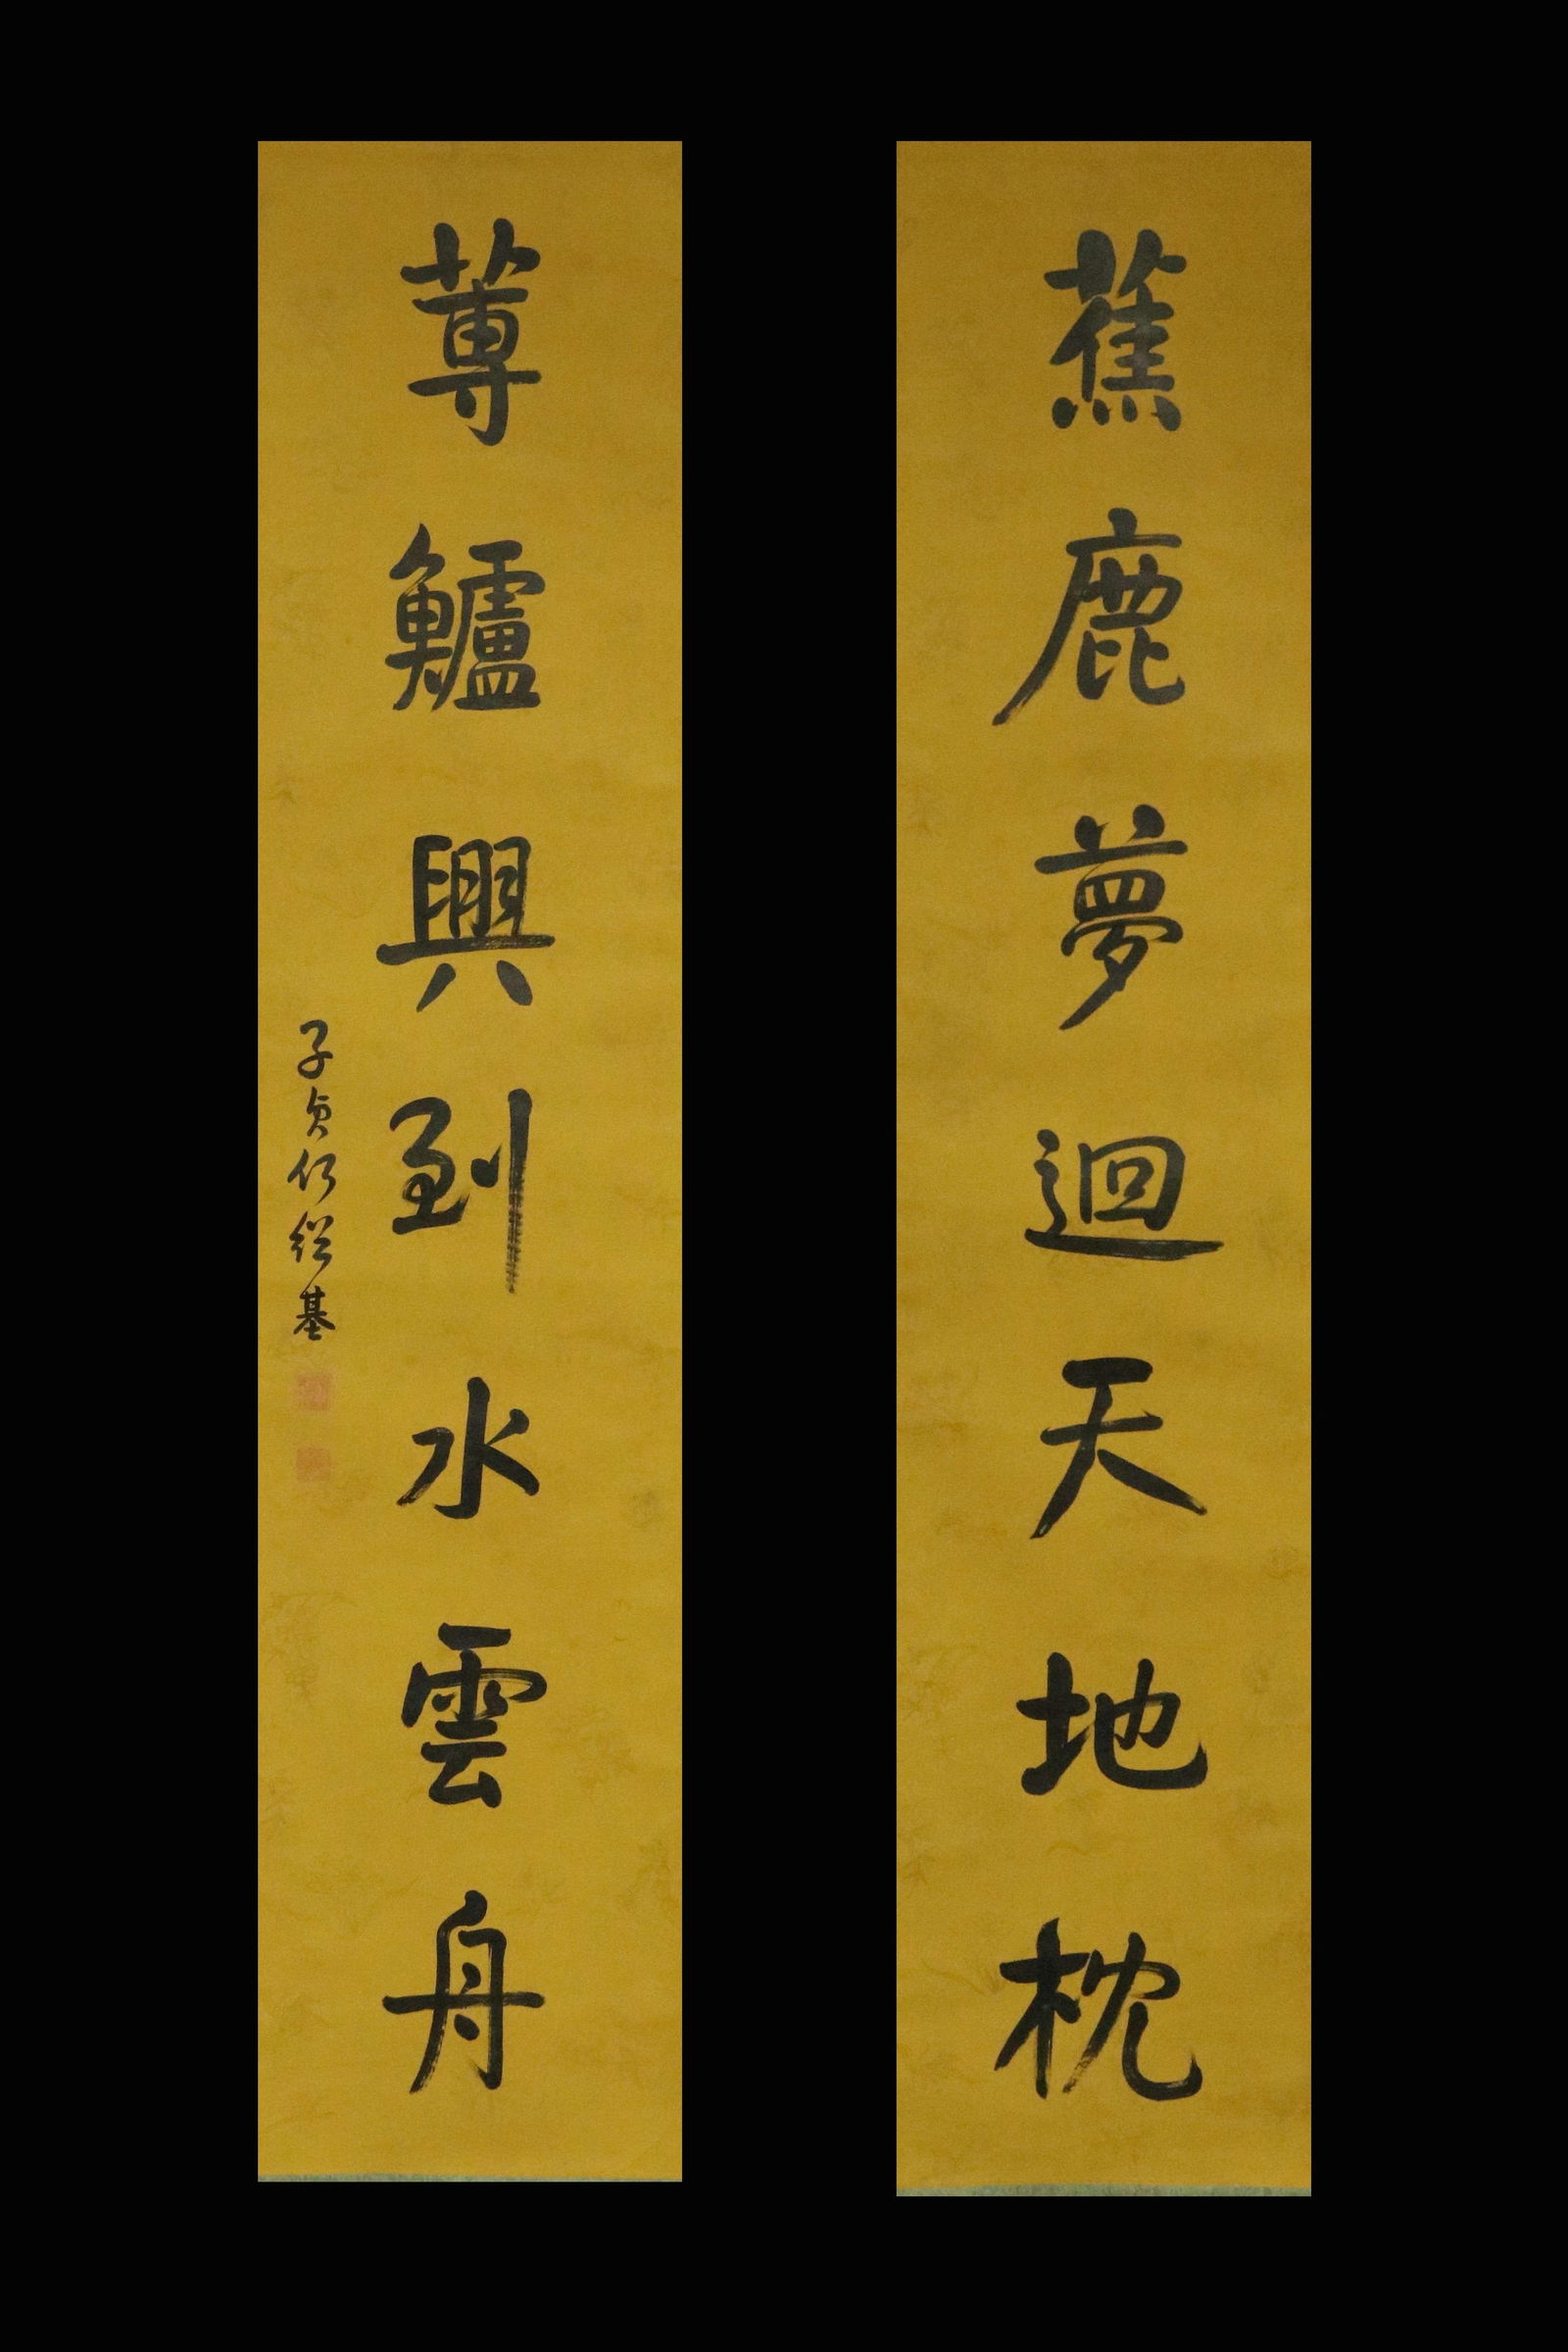 蕉鹿夢迴天地枕
蓴鱸興到水雲舟
子貞何紹基